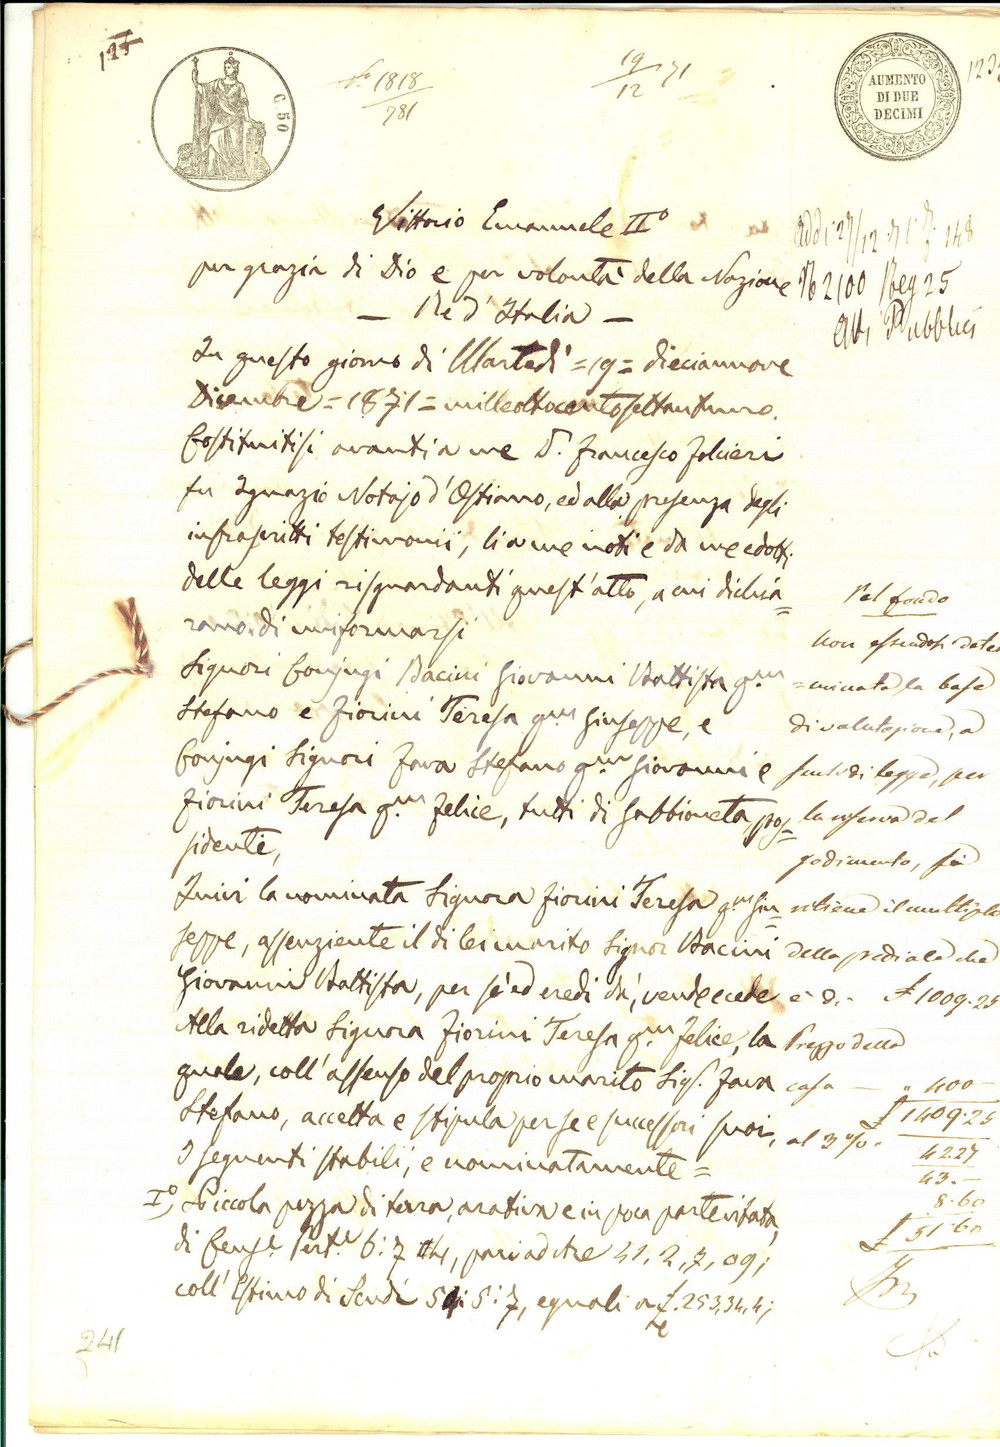 C. 50
AUMENTO
DI DUE
DECIMI
N.° 1818
781
19
12 71
Vittorio Emanuele II°
per grazia di Dio e per volontà della Nazione
— Re d'Italia —
Addì 27/12 71
N 2100 Reg 25
Atti Pubblici
In questo giorno di Martedì = 19 = dieciannove
Dicembre = 1871 = milleottocentosettantuno.
Costituitisi avanti a me D.r Francesco Folcieri
fu Ignazio Notajo d'Ostiano, ed alla presenza degli
infrascritti testimonii, li a me noti e da me edotti
delle leggi risguardanti quest'atto, a cui dichia=
rano di uniformarsi
Signori Conjugi Bacini Giovanni Battista q.m
Stefano e Fiorini Teresa q.m Giuseppe, e
Conjugi Signori Fava Stefano q.m Giovanni e
Fiorini Teresa q.m Felice, tutti di Sabbioneta, pos=
sidenti,
Quivi la nominata Signora Fiorini Teresa q.m Giu=
seppe, assenziente il di lei marito Signor Bacini
Giovanni Battista, per sé ed eredi dà, vende e cede
Alla ridetta Signora Fiorini Teresa q.m Felice, la
quale, coll'assenso del proprio marito Sig.r Fava
Stefano, accetta e stipula per se e successori suoi,
I seguenti stabili, e nominatamente =
I°, Piccola pezza di terra, arativa e in poca parte vitata,
di Cens.e Pert.e 6:7 pari ad Are 41, 2, 7, 09;
coll'Estimo di Scudi 5:7, eguali a £. 253,34,4;
Pel fondo
non essendosi deter
=minata la base
di valutazione, a
sensi di legge, per
la riserva del
godimento, si
ritiene il multiplo
della prediale che
è di - £ 1009.25
Prezzo della
casa — " 400 -
£ 1409.25
al 3% 42.27
43. -
8.60
£ 51.60
241